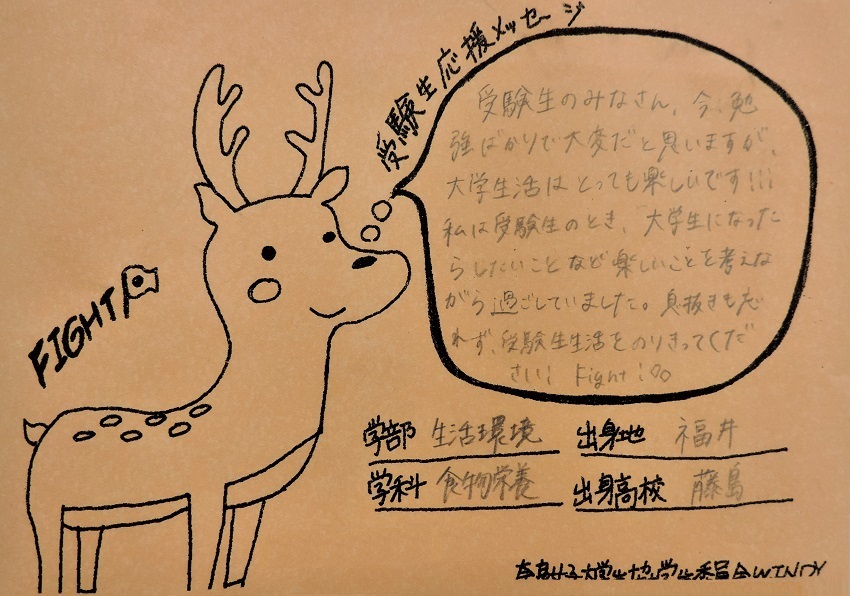 受験生応援メッセージ
受験生のみなさん、今、勉
強ばかりで大変だと思いますが、
大学生活はとっても楽しいです!!!
私は受験生のとき、大学生になった
らしたいことなど楽しいことを考えな
がら過ごしていました。息抜きも忘
れず、受験生生活をのりきってくだ
さい! Fight!
FIGHT
学部 生活環境 出身地 福井
学科 食物栄養 出身高校 藤島
奈良女子大学生協学生委員会WINDY